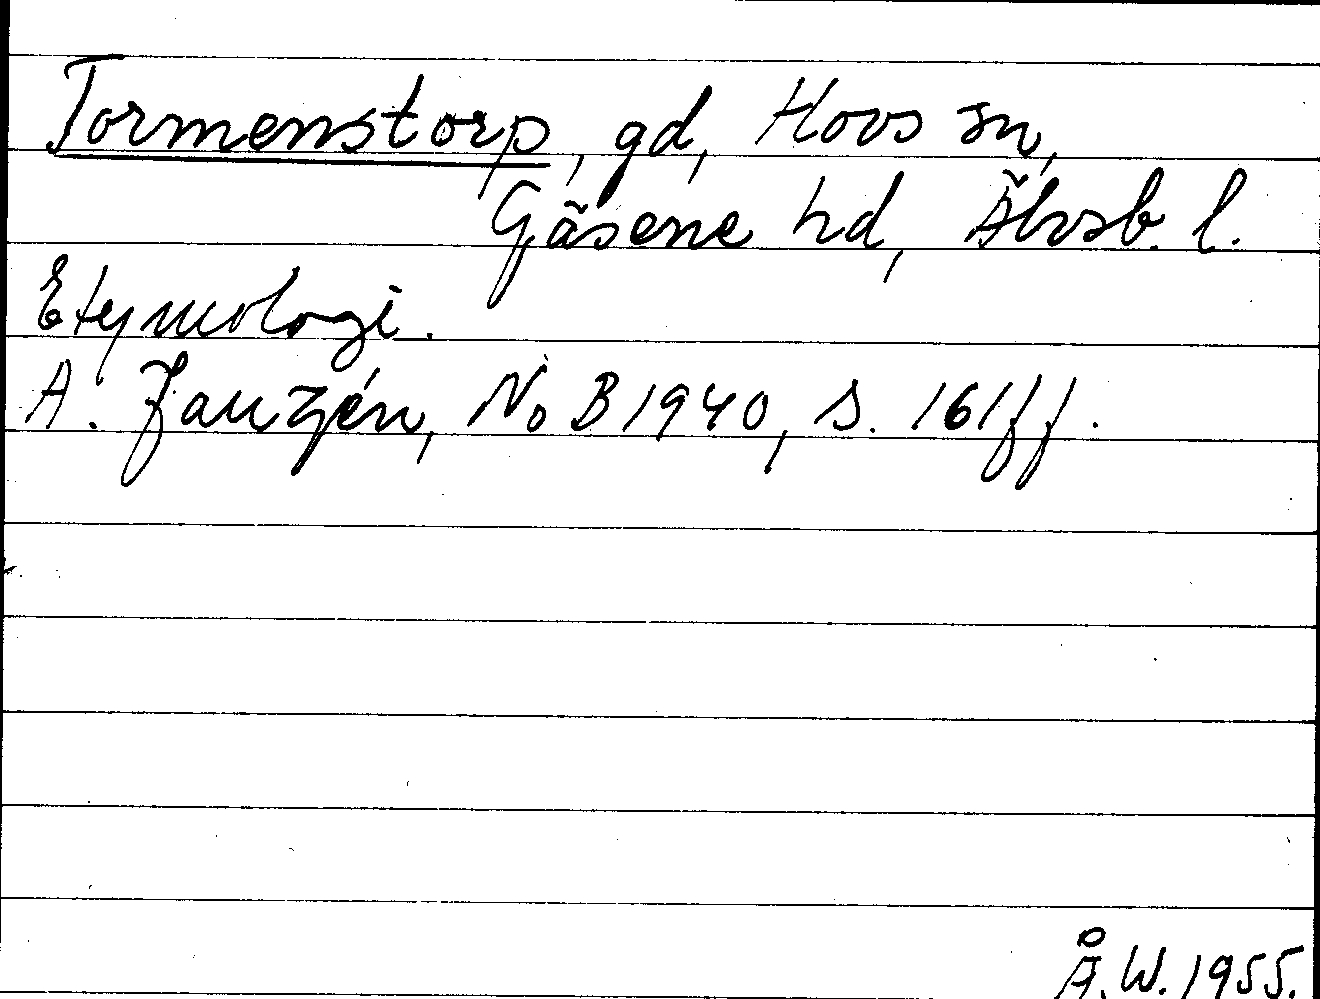 Tormenstorp, gd, Hovs sn,
Gäsene hd, Älvsb. l.
Etymologi.
A. Janzén, NoB 1940, s. 161 ff.
Å.W. 1955.